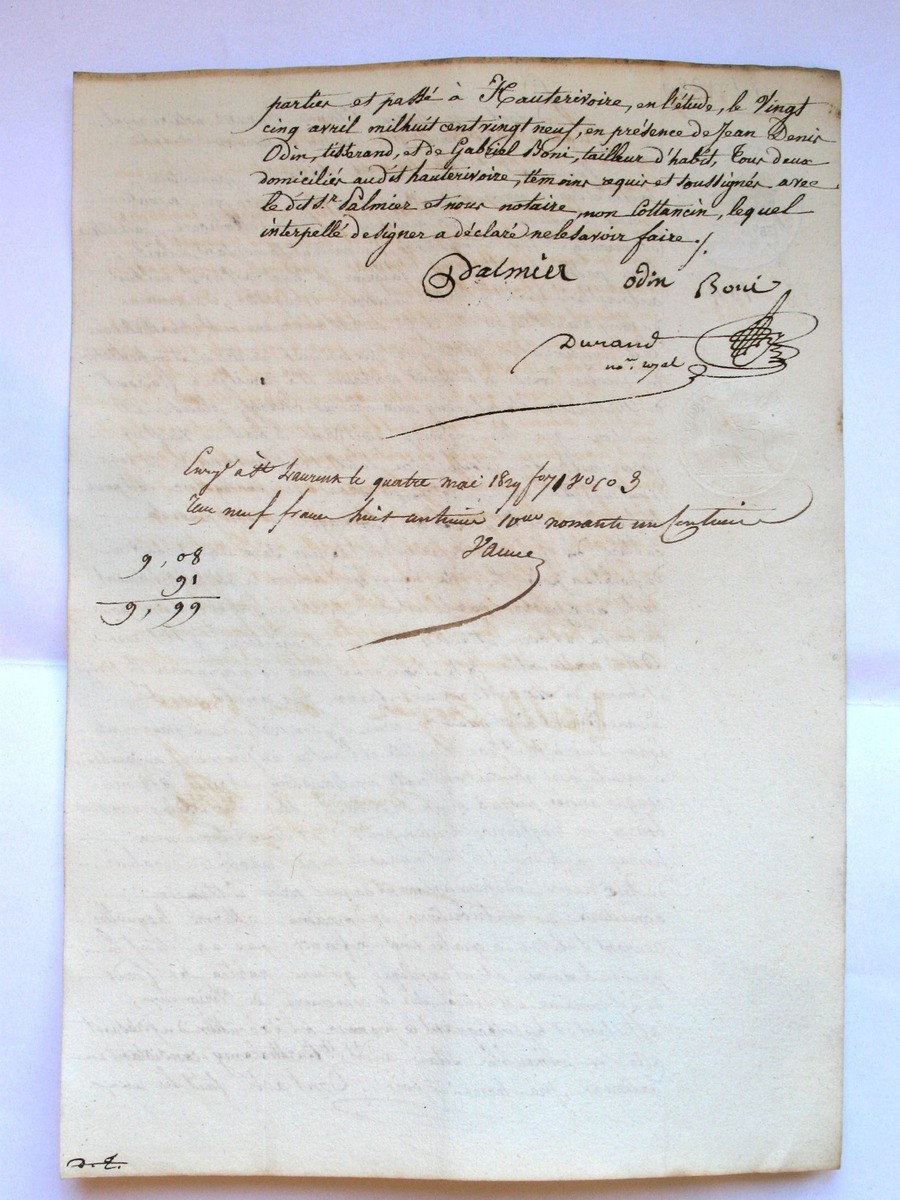 parties et passé à Hauterivoire, en l'étude, le Vingt
cinq avril mil huit cent vingt neuf, en présence de Jean Denis
Odin, tisserand, et de Gabriel Boni, tailleur d'habit, tous deux
domiciliés audit hauterivoire, témoins requis et soussignés avec
le dit Sr. Palmier et nous notaire, non Cottancin, lequel
interpellé de signer a déclaré ne le savoir faire ./.
Palmier odin Boni
Durand
nore. royal
Enregé à St Laurent le quatre mai 1829 fo 71 Vo Co 3
Reçu neuf francs huit centimes 10me nonante un Centimes
9,08
91
9,99
D.t.